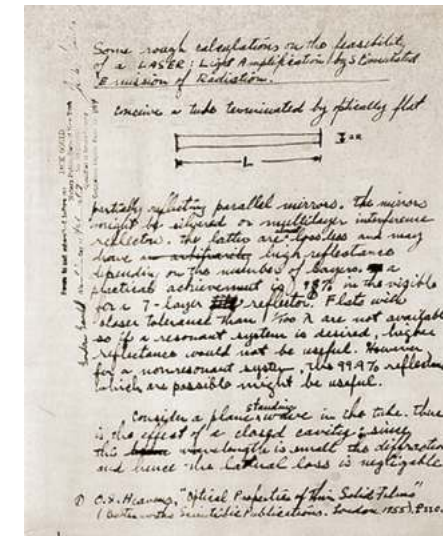 Some rough calculations on the feasibility
of a LASER: Light Amplification by Stimulated
Emission of Radiation.
conceive a tube terminated by optically flat
L
partially reflecting parallel mirrors. The mirrors
might be silvered or multilayer interference
reflectors. The latter are lossless and may
have high reflectance
depending on the number of layers. A
practical achievement is 98% in the visible
for a 7-layer reflector. Flats with
closer tolerance than 1/100 λ are not available
so if a resonant system is desired, higher
reflectance would not be useful. However
for a nonresonant system, the 99.9% reflectances
which are possible might be useful.
Consider a plane standing wave in the tube. There
is the effect of a closed cavity; since
the wavelength is small the diffraction
and hence the lateral loss is negligable
O.S. Heavens, "Optical Properties of Thin Solid Films"
(Butterworths Scientific Publications, London 1955), p220.